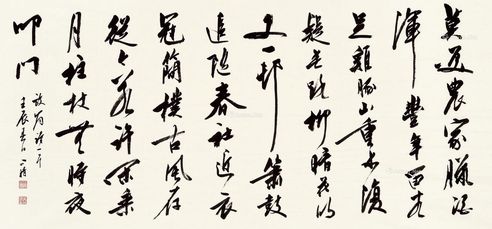 莫道農家臘酒
渾豐年留客
足雞豚山重水復
疑無路柳暗花明
又一邨簫鼓
追隨春社近衣
冠簡樸古風存
從今若許閑乘
月拄杖無時夜
叩門
放翁詩一首
壬辰春日